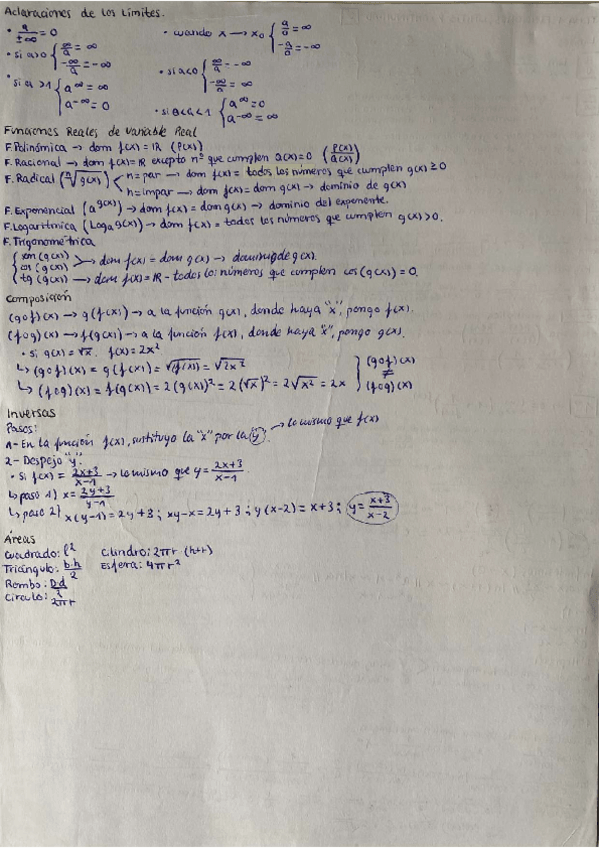 Aclaraciones de los Límites.
• a/±∞ = 0
• cuando x → x₀ { a/0 = ∞
-a/0 = -∞
• si a>0 { ∞/a = ∞
-∞/a = -∞
• si a<0 { ∞/a = -∞
-∞/a = ∞
• si a>1 { a^∞ = ∞
a^-∞ = 0
• si 0<a<1 { a^∞ = 0
a^-∞ = ∞
Funciones Reales de Variable Real
F. Polinómica → dom f(x) = IR (P(x))
F. Racional → dom f(x) = IR excepto nº que cumplen Q(x)=0 (P(x)/Q(x))
F. Radical (ⁿ√g(x)) < n=par → dom f(x) = todos los números que cumplen g(x) ≥ 0
n=impar → dom f(x) = dom g(x) → dominio de g(x)
F. Exponencial (a^g(x)) → dom f(x) = dom g(x) → dominio del exponente.
F. Logarítmica (Logₐ g(x)) → dom f(x) = todos los números que cumplen g(x) > 0.
F. Trigonométrica
{ sen (g(x))
cos (g(x)) > → dom f(x) = dom g(x) → dominio de g(x).
tg (g(x)) → dom f(x) = IR - todos los números que cumplen cos(g(x)) = 0.
Composición
(g∘f)(x) → g(f(x)) → a la función g(x), donde haya "x", pongo f(x).
(f∘g)(x) → f(g(x)) → a la función f(x), donde haya "x", pongo g(x).
• Si g(x) = √x. f(x) = 2x²
↳ (g∘f)(x) = g(f(x)) = √f(x) = √2x²
↳ (f∘g)(x) = f(g(x)) = 2(g(x))² = 2(√x)² = 2√x² = 2x } (g∘f)(x) ≠ (f∘g)(x)
Inversas
Pasos:
1- En la función f(x), sustituyo la "x" por la "y". → lo mismo que f(x)
2- Despejo "y".
• Si f(x) = 2x+3/x-1 → lo mismo que y = 2x+3/x-1
↳ paso 1) x = 2y+3/y-1
↳ paso 2) x(y-1) = 2y+3; xy-x = 2y+3; y(x-2) = x+3; y = x+3/x-2
Áreas
Cuadrado: l² Cilindro: 2πr (h+r)
Triángulo: b·h/2 Esfera: 4πr²
Rombo: D·d/2
Círculo: 2πr